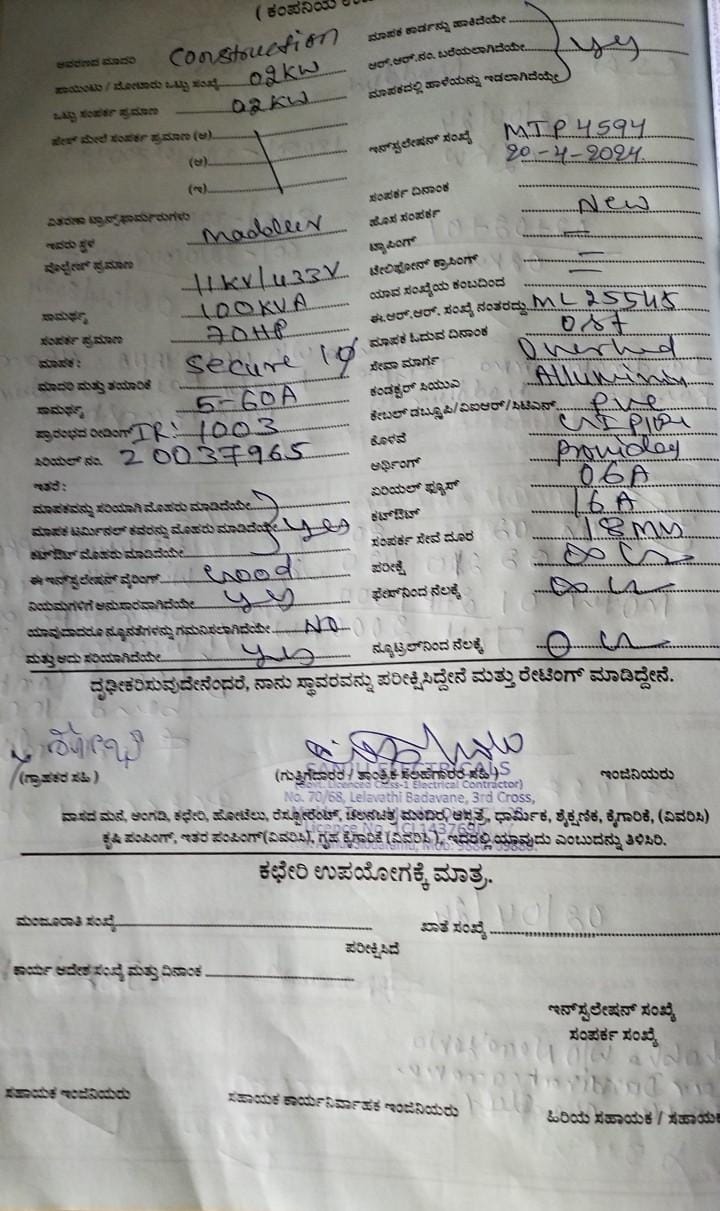 ( ಕಂಪನಿಯ
ಆವರಣದ ಮಾದರಿ Construction
ಪಾಯಿಂಟು / ಮೋಟಾರು ಒಟ್ಟು ಸಂಖ್ಯೆ 02KW
ಒಟ್ಟು ಸಂಪರ್ಕ ಪ್ರಮಾಣ 02KW
ಫೇಸ್ ಮೇಲೆ ಸಂಪರ್ಕ ಪ್ರಮಾಣ (ಅ)
(ಆ)
(ಇ)
ವಿತರಣಾ ಟ್ರಾನ್ಸ್‌ಫಾರ್ಮರುಗಳು
ಇವರು ಸ್ಥಳ
ವೋಲ್ಟೇಜ್ ಪ್ರಮಾಣ 11KV/433V
ಸಾಮರ್ಥ್ಯ 100KVA
ಸಂಪರ್ಕ ಪ್ರಮಾಣ 70HP
ಮಾಪಕ: Secure 1Ø
ಮಾದರಿ ಮತ್ತು ತಯಾರಿಕೆ
ಸಾಮರ್ಥ್ಯ 5-60A
ಪ್ರಾರಂಭದ ರೀಡಿಂಗ್ IR: 1003
ಸಿರಿಯಲ್ ನಂ. 20037965
ಇತರೆ :
ಮಾಪಕವನ್ನು ಸರಿಯಾಗಿ ಮೊಹರು ಮಾಡಿದೆಯೇ
ಮಾಪಕ ಟರ್ಮಿನಲ್ ಕವರನ್ನು ಮೊಹರು ಮಾಡಿದೆಯೇ yes
ಕಟ್‌ಔಟ್ ಮೊಹರು ಮಾಡಿದೆಯೇ
ಈ ಇನ್‌ಸ್ಟಲೇಷನ್ ವೈರಿಂಗ್ Good
ನಿಯಮಗಳಿಗೆ ಅನುಸಾರವಾಗಿದೆಯೇ yes
ಯಾವುದಾದರೂ ನ್ಯೂನತೆಗಳನ್ನು ಗಮನಿಸಲಾಗಿದೆಯೇ NO
ಮತ್ತು ಅದು ಸರಿಯಾಗಿದೆಯೇ yes
ಮಾಪಕ ಕಾರ್ಡನ್ನು ಹಾಕಿದೆಯೇ
ಆರ್.ಆರ್.ನಂ. ಬರೆಯಲಾಗಿದೆಯೇ yes
ಮಾಪಕದಲ್ಲಿ ಹಾಳೆಯನ್ನು ಇಡಲಾಗಿದೆಯೇ
ಇನ್‌ಸ್ಟಲೇಷನ್ ಸಂಖ್ಯೆ MTP4594
20-4-2024
ಸಂಪರ್ಕ ದಿನಾಂಕ
ಹೊಸ ಸಂಪರ್ಕ New
ಟ್ಯಾಪಿಂಗ್ —
ಟೆಲಿಫೋನ್ ಕ್ರಾಸಿಂಗ್ —
ಯಾವ ಸಂಖ್ಯೆಯ ಕಂಬದಿಂದ —
ಈ.ಆರ್.ಆರ್. ಸಂಖ್ಯೆ ನಂತರದ್ದು ML25545
ಮಾಪಕ ಓದುವ ದಿನಾಂಕ
ಸೇವಾ ಮಾರ್ಗ Overhed
ಕಂಡಕ್ಟರ್ ಸಿಯುಎ
ಕೇಬಲ್ ಡಬ್ಲ್ಯೂಪಿ/ವಿಐಆರ್/ಸಿಟಿಎಸ್ PVC
ಕೊಳವೆ
ಅರ್ಥಿಂಗ್ Provided
ಏರಿಯಲ್ ಫ್ಯೂಸ್ 06A
ಕಟ್‌ಔಟ್ 16A
ಸಂಪರ್ಕ ಸೇವೆ ದೂರ
ಪರೀಕ್ಷೆ
ಫೇಸ್‌ನಿಂದ ನೆಲಕ್ಕೆ
ನ್ಯೂಟ್ರಲ್‌ನಿಂದ ನೆಲಕ್ಕೆ
ದೃಢೀಕರಿಸುವುದೇನೆಂದರೆ, ನಾನು ಸ್ಥಾವರವನ್ನು ಪರೀಕ್ಷಿಸಿದ್ದೇನೆ ಮತ್ತು ರೇಟಿಂಗ್ ಮಾಡಿದ್ದೇನೆ.
(ಗ್ರಾಹಕರ ಸಹಿ ) (ಗುತ್ತಿಗೆದಾರರ / ತಾಂತ್ರಿಕ ಸಲಹೆಗಾರರ ಸಹಿ ) ಇಂಜಿನಿಯರು
SANJU ELECTRICALS
(Govt. Licenced Class-1 Electrical Contractor)
No. 70/68, Lelavathi Badavane, 3rd Cross,
ವಾಸದ ಮನೆ, ಅಂಗಡಿ, ಕಛೇರಿ, ಹೋಟೆಲು, ರೆಸ್ಟೋರೆಂಟ್, ಚಲನಚಿತ್ರ ಮಂದಿರ, ಆಸ್ಪತ್ರೆ, ಧಾರ್ಮಿಕ, ಶೈಕ್ಷಣಿಕ, ಕೈಗಾರಿಕೆ, (ವಿವರಿಸಿ)
ಕೃಷಿ ಪಂಪಿಂಗ್, ಇತರ ಪಂಪಿಂಗ್(ವಿವರಿಸಿ), ಗೃಹ ಕೈಗಾರಿಕೆ (ವಿವರಿಸಿ ), ಇದರಲ್ಲಿ ಯಾವುದು ಎಂಬುದನ್ನು ತಿಳಿಸಿರಿ.
ಕಛೇರಿ ಉಪಯೋಗಕ್ಕೆ ಮಾತ್ರ.
ಮಂಜೂರಾತಿ ಸಂಖ್ಯೆ ಖಾತೆ ಸಂಖ್ಯೆ
ಪರೀಕ್ಷಿಸಿದೆ
ಕಾರ್ಯ ಆದೇಶ ಸಂಖ್ಯೆ ಮತ್ತು ದಿನಾಂಕ
ಇನ್‌ಸ್ಟಲೇಷನ್ ಸಂಖ್ಯೆ
ಸಂಪರ್ಕ ಸಂಖ್ಯೆ
ಸಹಾಯಕ ಇಂಜಿನಿಯರು ಸಹಾಯಕ ಕಾರ್ಯನಿರ್ವಾಹಕ ಇಂಜಿನಿಯರು ಹಿರಿಯ ಸಹಾಯಕ / ಸಹಾಯಕ